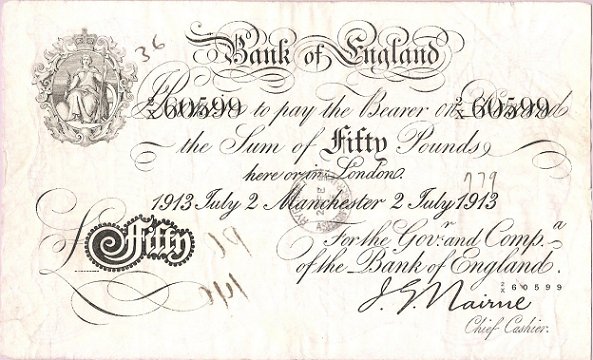 36
Bank of England
I Promise to pay the Bearer on Demand
2/X 60599 2/X 60599
the Sum of Fifty Pounds
here or in London.
779
1913 July 2 Manchester 2 July 1913
£ Fifty
For the Gov.r and Comp.a
of the Bank of England.
2/X 60599
J. G. Nairne
Chief Cashier.